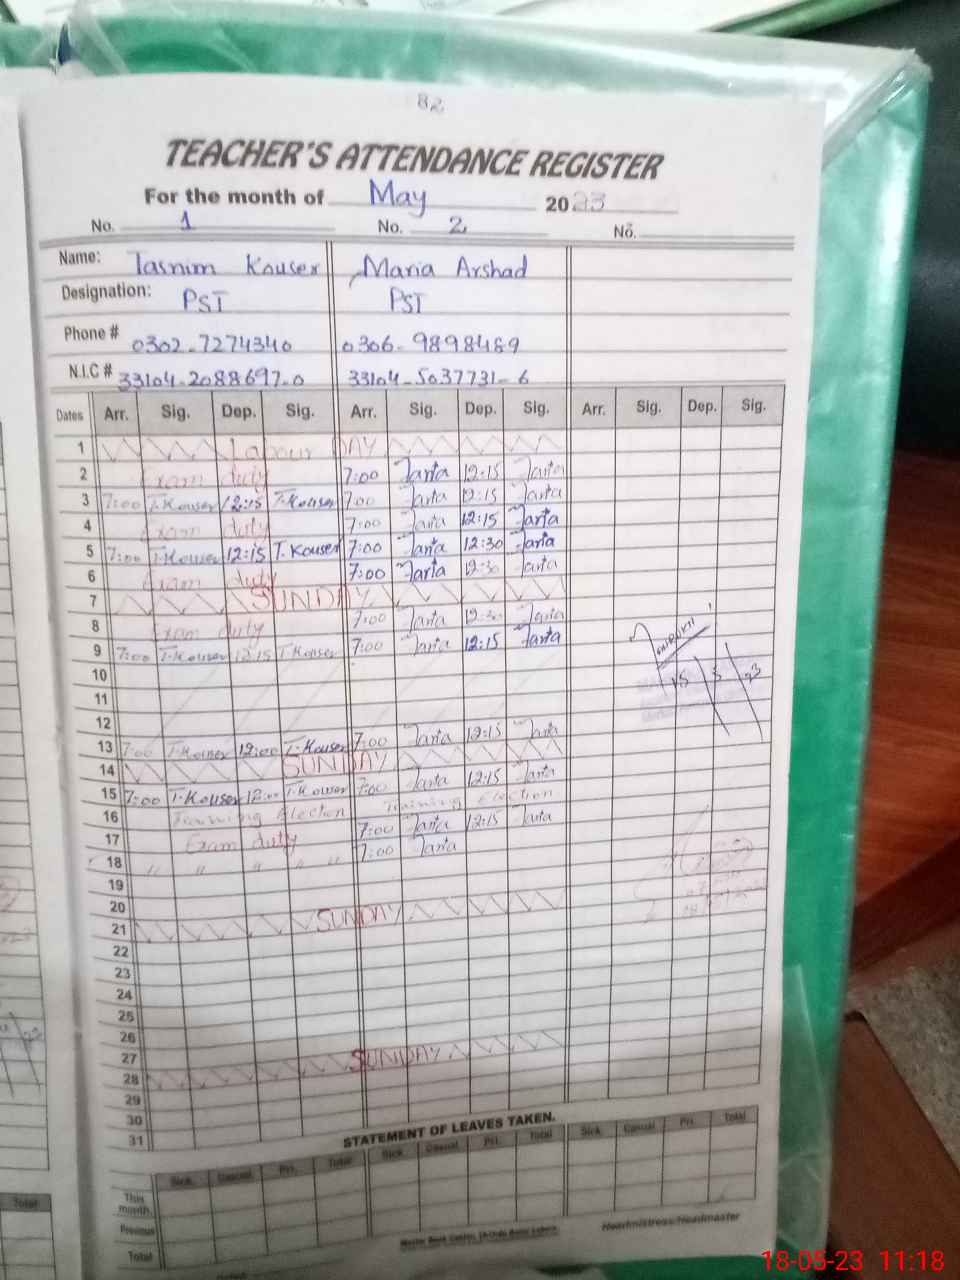 82
TEACHER'S ATTENDANCE REGISTER
For the month of May 2023
No. 1 No. 2 No.
Name: Tasnim Kouser Maria Arshad
Designation: PST PST
Phone # 0302-7274340 0306-9898489
N.I.C # 33104-2088697-0 33104-5037731-6
Dates Arr. Sig. Dep. Sig. Arr. Sig. Dep. Sig. Arr. Sig. Dep. Sig.
1 Labour DAY
2 Exam duty 7:00 12:15
3 7:00 T.Kouser 12:15 T.Kouser 7:00 12:15
4 Exam duty 7:00 12:15
5 7:00 T.Kouser 12:15 T.Kouser 7:00 12:30
6 Exam duty 7:00 12:30
7 SUNDAY
8 Exam duty 7:00 12:30
9 7:00 T.Kouser 12:15 T.Kouser 7:00 12:15
10
11
12
13 7:00 T.Kouser 12:00 T.Kouser 7:00 12:15
14 SUNDAY
15 7:00 T.Kouser 12:00 T.Kouser 7:00 12:15
15 5 23
16 Training Election Training Election
17 Exam duty 7:00 12:15
18 " " " " " 7:00
19
20
21 SUNDAY
22
23
24
25
26
27
28 SUNDAY
29
30
31
STATEMENT OF LEAVES TAKEN.
Sick. Casual. Pri. Total Sick. Casual. Pri. Total Sick. Casual. Pri. Total
This month
Previous
Total
Headmistress/Headmaster
Total
18-05-23 11:18